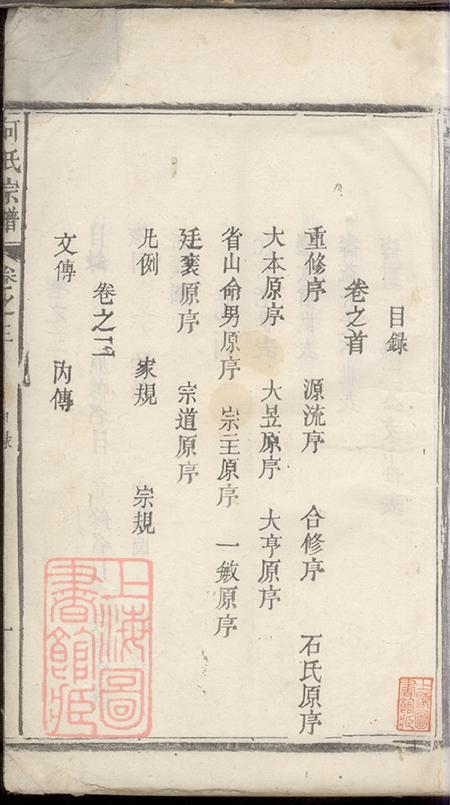 目錄
卷之首
重修序 源流序 合修序 石氏原序
大本原序 大昱原序 大亨原序
省山命男原序 宗主原序 一敏原序
廷褒原序 宗道原序
凡例 家規 宗規
卷之二
文傳 內傳
何氏宗譜
卷之三
目錄
一
上海圖書館藏
上海圖書館藏